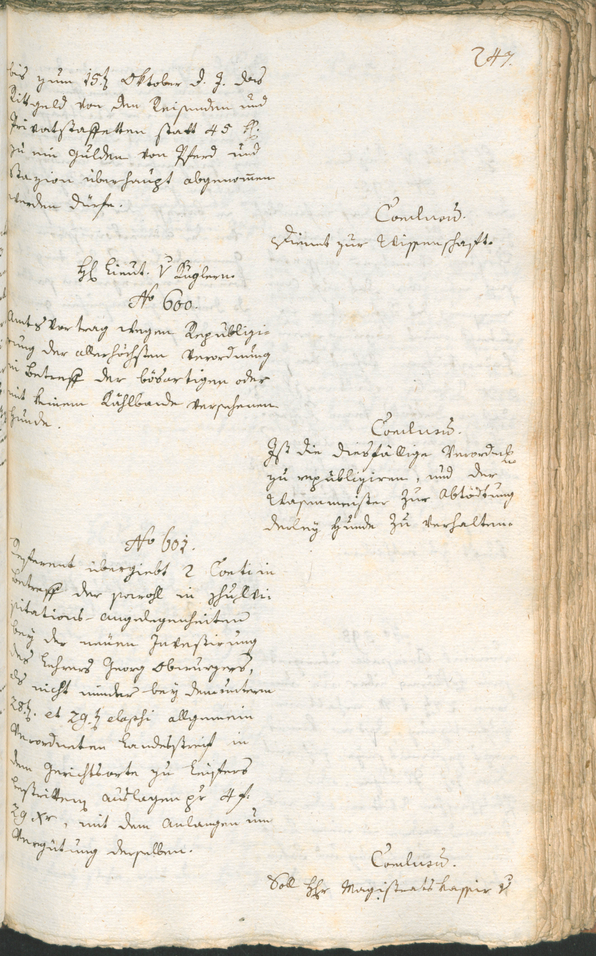 247.
bis zum 15t Oktober d. J. das
Rittgeld von den Reisenden und
Privatstaffetten statt 45 x.
zu ein Gulden von Pferd und
Stazion überhaupt abgenommen
werden dürfe.
Conclusum.
Dienet zur Wissenschaft.
H. Lieut. v Kuglern.
No 600.
Amtsvortrag wegen Republizi-
rung der allerhöchsten Verordnung
in Betreff der bösartigen oder
mit keinem Halsbande versehenen
Hunde.
Conclusum.
Ist die diesfällige Verordnung
zu republiziren, und der
Wasenmeister zur Abtödtung
derley Hunde zu verhalten.
No 601.
Referent übergiebt 2 Conti in
Betreff der sowohl in Schulvi-
sitations-Angelegenheiten
bey der neuen Investirung
des Lehrers Georg Obwurgers,
als nicht minder bey dem unterm
28t. et 29.t elapsi allgemein
verordneten Landesstreif in
dem Gerichtsorte zu Leifers
bestrittenen Auslagen pr 4 f.
29 xr, mit dem Anlangen um
Vergütung derselben.
Conclusum.
Soll Hr Magistratskassir